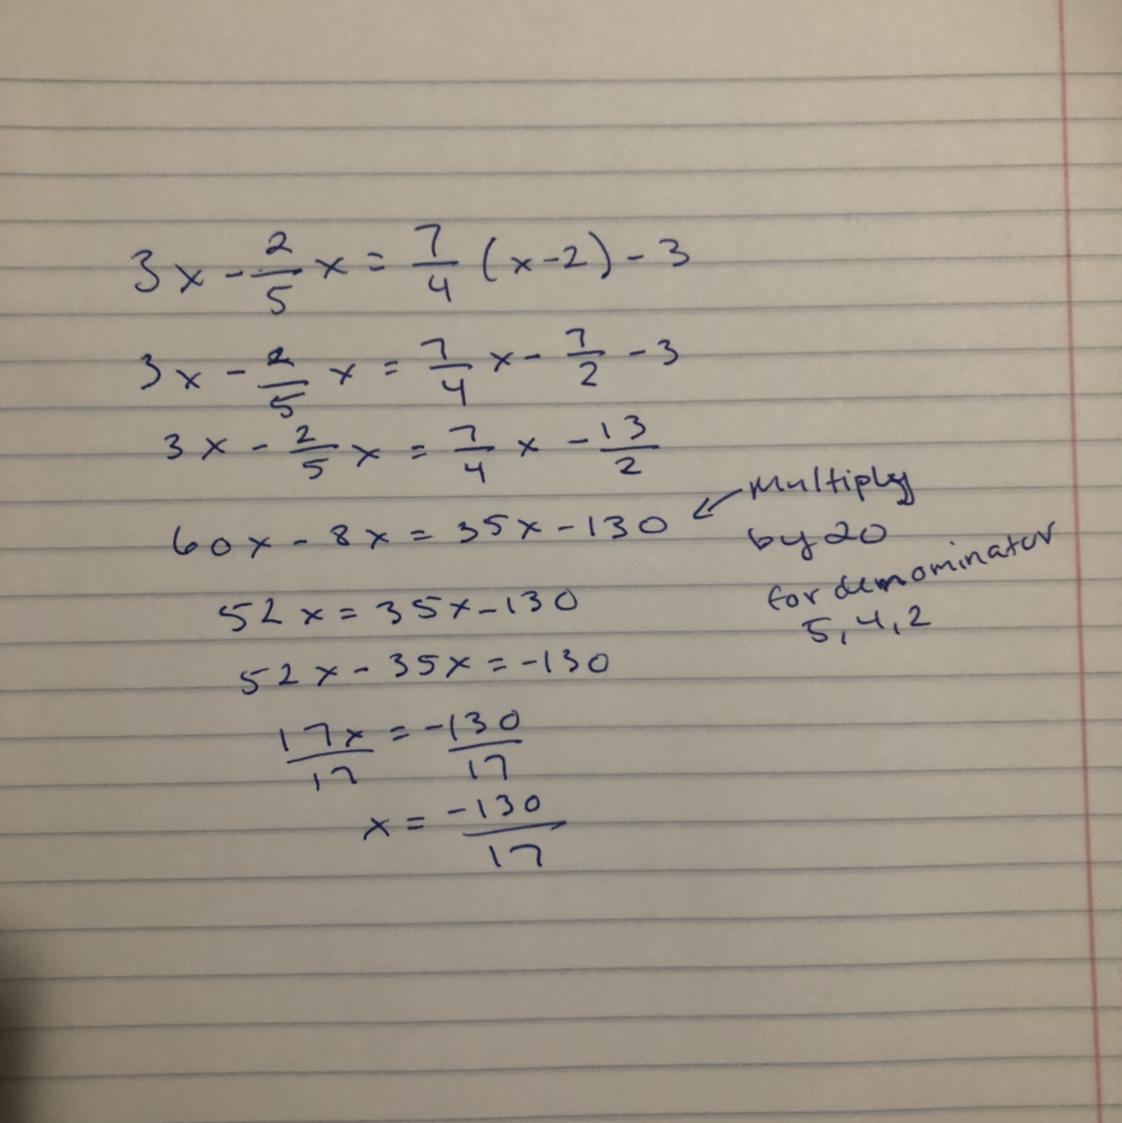 3x - 2/5 x = 7/4 (x-2) - 3
3x - 2/5 x = 7/4 x - 7/2 - 3
3x - 2/5 x = 7/4 x - 13/2
60x - 8x = 35x - 130 ← Multiply
by 20
for denominator
5, 4, 2
52x = 35x - 130
52x - 35x = -130
17x/17 = -130/17
x = -130/17